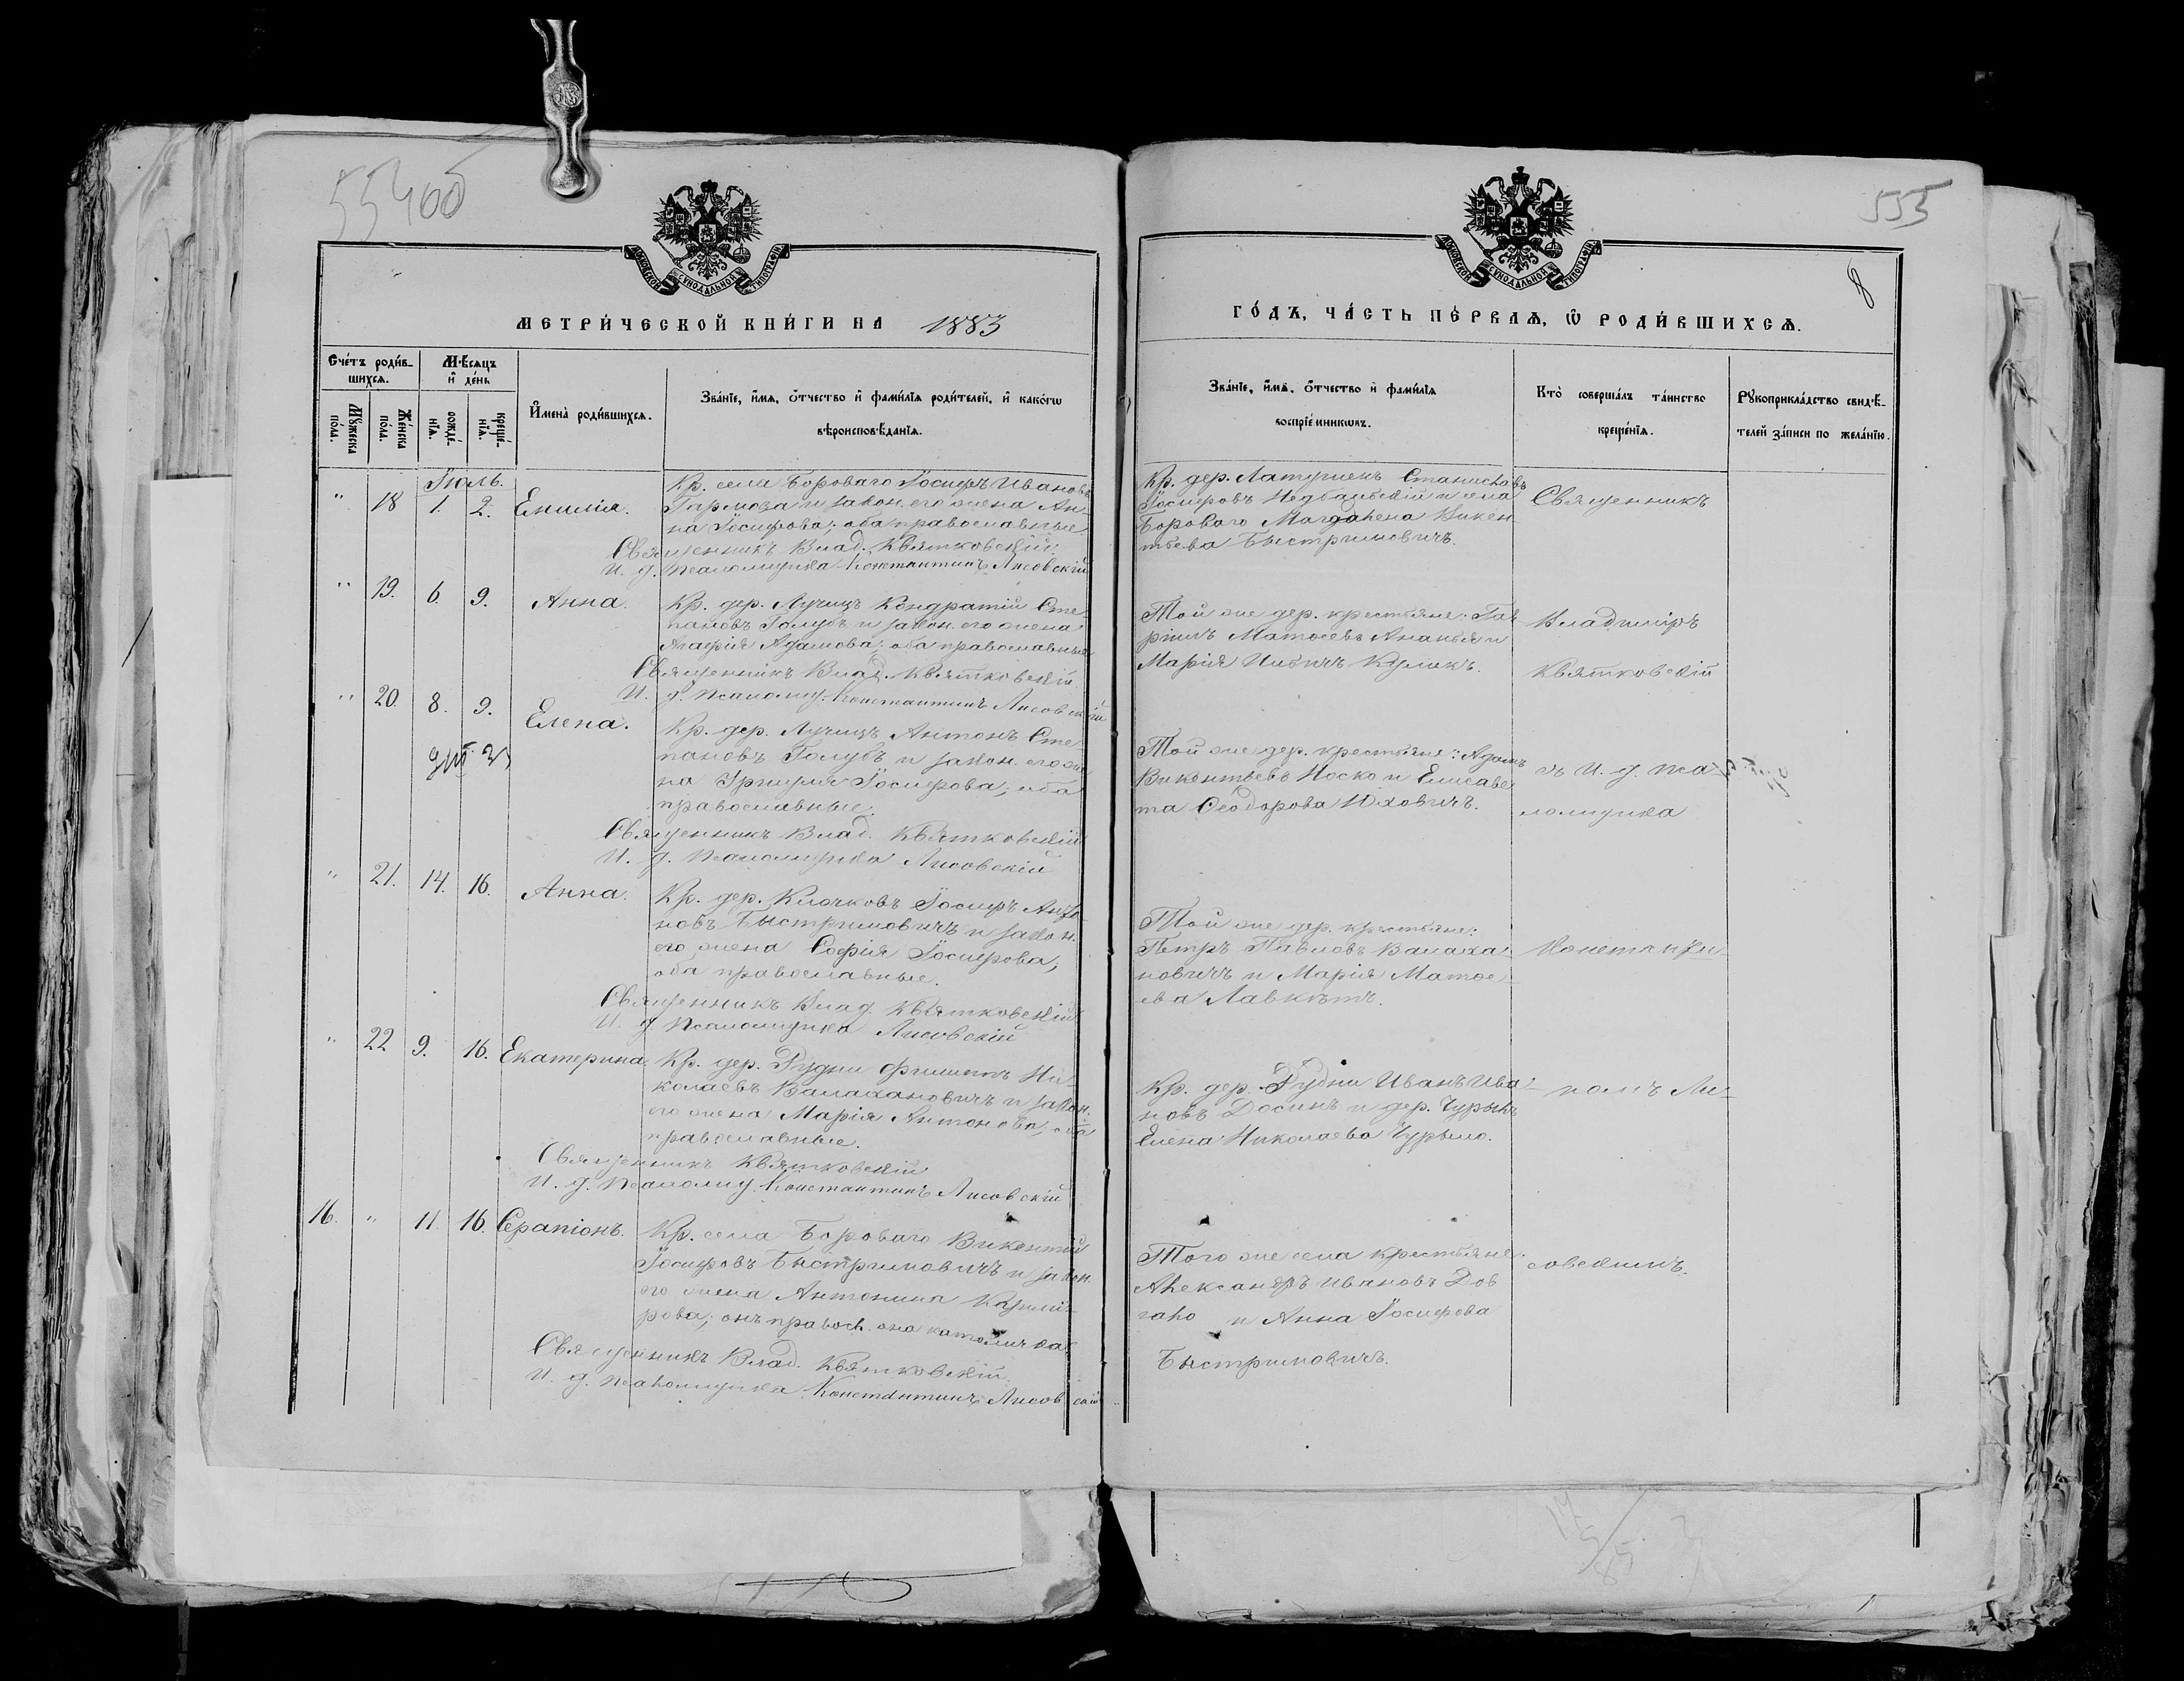 55400
555
8
МОСКОВСКОЙ СѴНОДАЛЬНОЙ ТИПОГРАФІИ
МОСКОВСКОЙ СѴНОДАЛЬНОЙ ТИПОГРАФІИ
МЕТРИ́ЧЕСКОЙ КНИ́ГИ НА 1883
ГО́ДЪ, ЧА́СТЬ ПЕ́РВАѦ, Ѡ РОДИ́ВШИХСѦ.
Сче́тъ роди́в-
шихсѧ.
Мꙋжеска по́ла.
Же́нска по́ла.
Мѣсѧцъ
и де́нь
рожде́-
нїѧ.
креще́-
нїѧ.
Имена̀ роди́вшихсѧ.
Зва́нїе, и́мѧ, ѻ́тчество и фами́лїѧ роди́телей, и како́гѡ
вѣроисповѣ́данїѧ.
Зва́нїе, и́мѧ, ѻ́тчество и фами́лїѧ
воспрїе́мникѡвъ.
Кто̀ соверша́лъ та́инство
креще́нїѧ.
Рꙋкоприкла́дство свидѣ́-
телей за́писи по жела́нїю.
Іюль.
" 18 1. 2. Емилія.
Кр. села Бороваго Іосифъ Ивановъ
Гармоза и закон. его жена Ан-
на Іосифова; оба православные
Священникъ Влад. Квятковскій
И. д. псаломщика Константинъ Лисовскій
Кр. дер. Станиславъ
Іосифовъ и села
Бороваго Магдалена Викен
тьева Быстримовичъ.
Священникъ
" 19. 6. 9. Анна.
Кр. дер. Лучицъ Кондратій Сте-
пановъ Голубъ и закон. его жена
Агафія Адамова; оба православные
Священникъ Влад. Квятковскій
И. д. псаломщ. Константинъ Лисовскій
Той же дер. крестьяне: Гав
ріилъ Матѳеевъ Ананья и
Марія Куликъ.
Владиміръ
Квятковскій
" 20. 8. 9. Елена.
Кр. дер. Лучицъ Антонъ Сте-
пановъ Голубъ и закон. его же
на Іосифова; оба
православные.
Священникъ Влад. Квятковскій
И. д. псаломщика Лисовскій
Той же дер. крестьяне: Адамъ
Викентьевъ Носко и Елисаве
та Ѳеодорова Юховичъ.
съ И. д. пса-
ломщика
" 21. 14. 16. Анна.
Кр. дер. Клочковъ Іосифъ Анто-
новъ Быстримовичъ и закон.
его жена Софія Іосифова;
оба православные.
Священникъ Влад. Квятковскій
И. д. псаломщика Лисовскій
Той же дер. крестьяне:
Петръ Павловъ Валаха-
новичъ и Марія Матѳе-
ева
Константи-
" 22 9. 16. Екатерина.
Кр. дер. Рудни Филиппъ Ни-
колаевъ Валахановичъ и закон.
его жена Марія Антонова; оба
православные.
Священникъ Квятковскій
И. д. псаломщ. Константинъ Лисовскій
Кр. дер. Рудни Иванъ Ива-
новъ Досинъ и дер. Чурилъ
Елена Николаева Чурыло.
номъ Ли-
16. " 11. 16. Серапіонъ.
Кр. села Бороваго Викентій
Іосифовъ Быстримовичъ и закон.
его жена Антонина
рова; онъ правосл. она католичка.
Священникъ Влад. Квятковскій.
И. д. псаломщика Константинъ Лисовскій
Того же села крестьяне.
Александръ Ивановъ Дов
гало и Анна Іосифова
Быстримовичъ.
совскимъ.